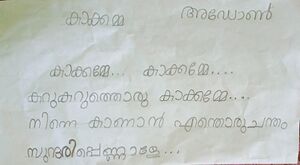 കാക്കമ്മ അഡോൺ
കാക്കമ്മേ... കാക്കമ്മേ....
കറുകറുത്തൊരു കാക്കമ്മേ....
നിന്നെ കാണാൻ എന്തൊരുചന്തം
സുന്ദരിപ്പെണ്ണാളേ...